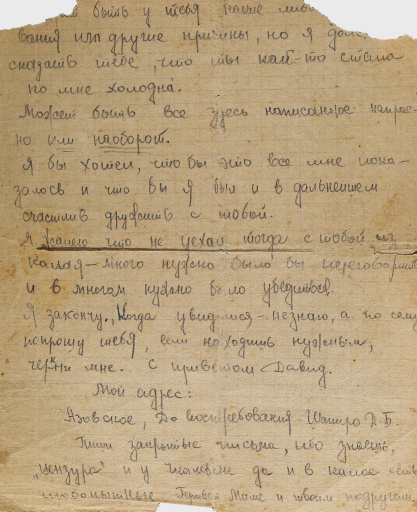 быть у тебя какие либо
вания или другие причины, но я должен
сказать тебе, что ты как-то стала
ко мне холодна.
Может быть все здесь написанное напрас-
но или наоборот.
Я бы хотел, чтобы это все мне пока-
залось и что бы я был и в дальнейшем
счастлив дружить с тобой.
Я жалею что не уехал тогда с тобой из
Калая – много нужно было бы переговорить
и в многом нужно было убедиться.
Я закончу., Когда увидимся – незнаю, а по сему
попрошу тебя, если находишь нужным,
черкни мне. С приветом Давид.
Мой адрес:
Азовское, До востребования Шапиро Д.Б.
Пиши закрытые письма, ибо знаешь,
"цензура" и у да и в Калае есть
любопытные Привет Маше и твоим подругам